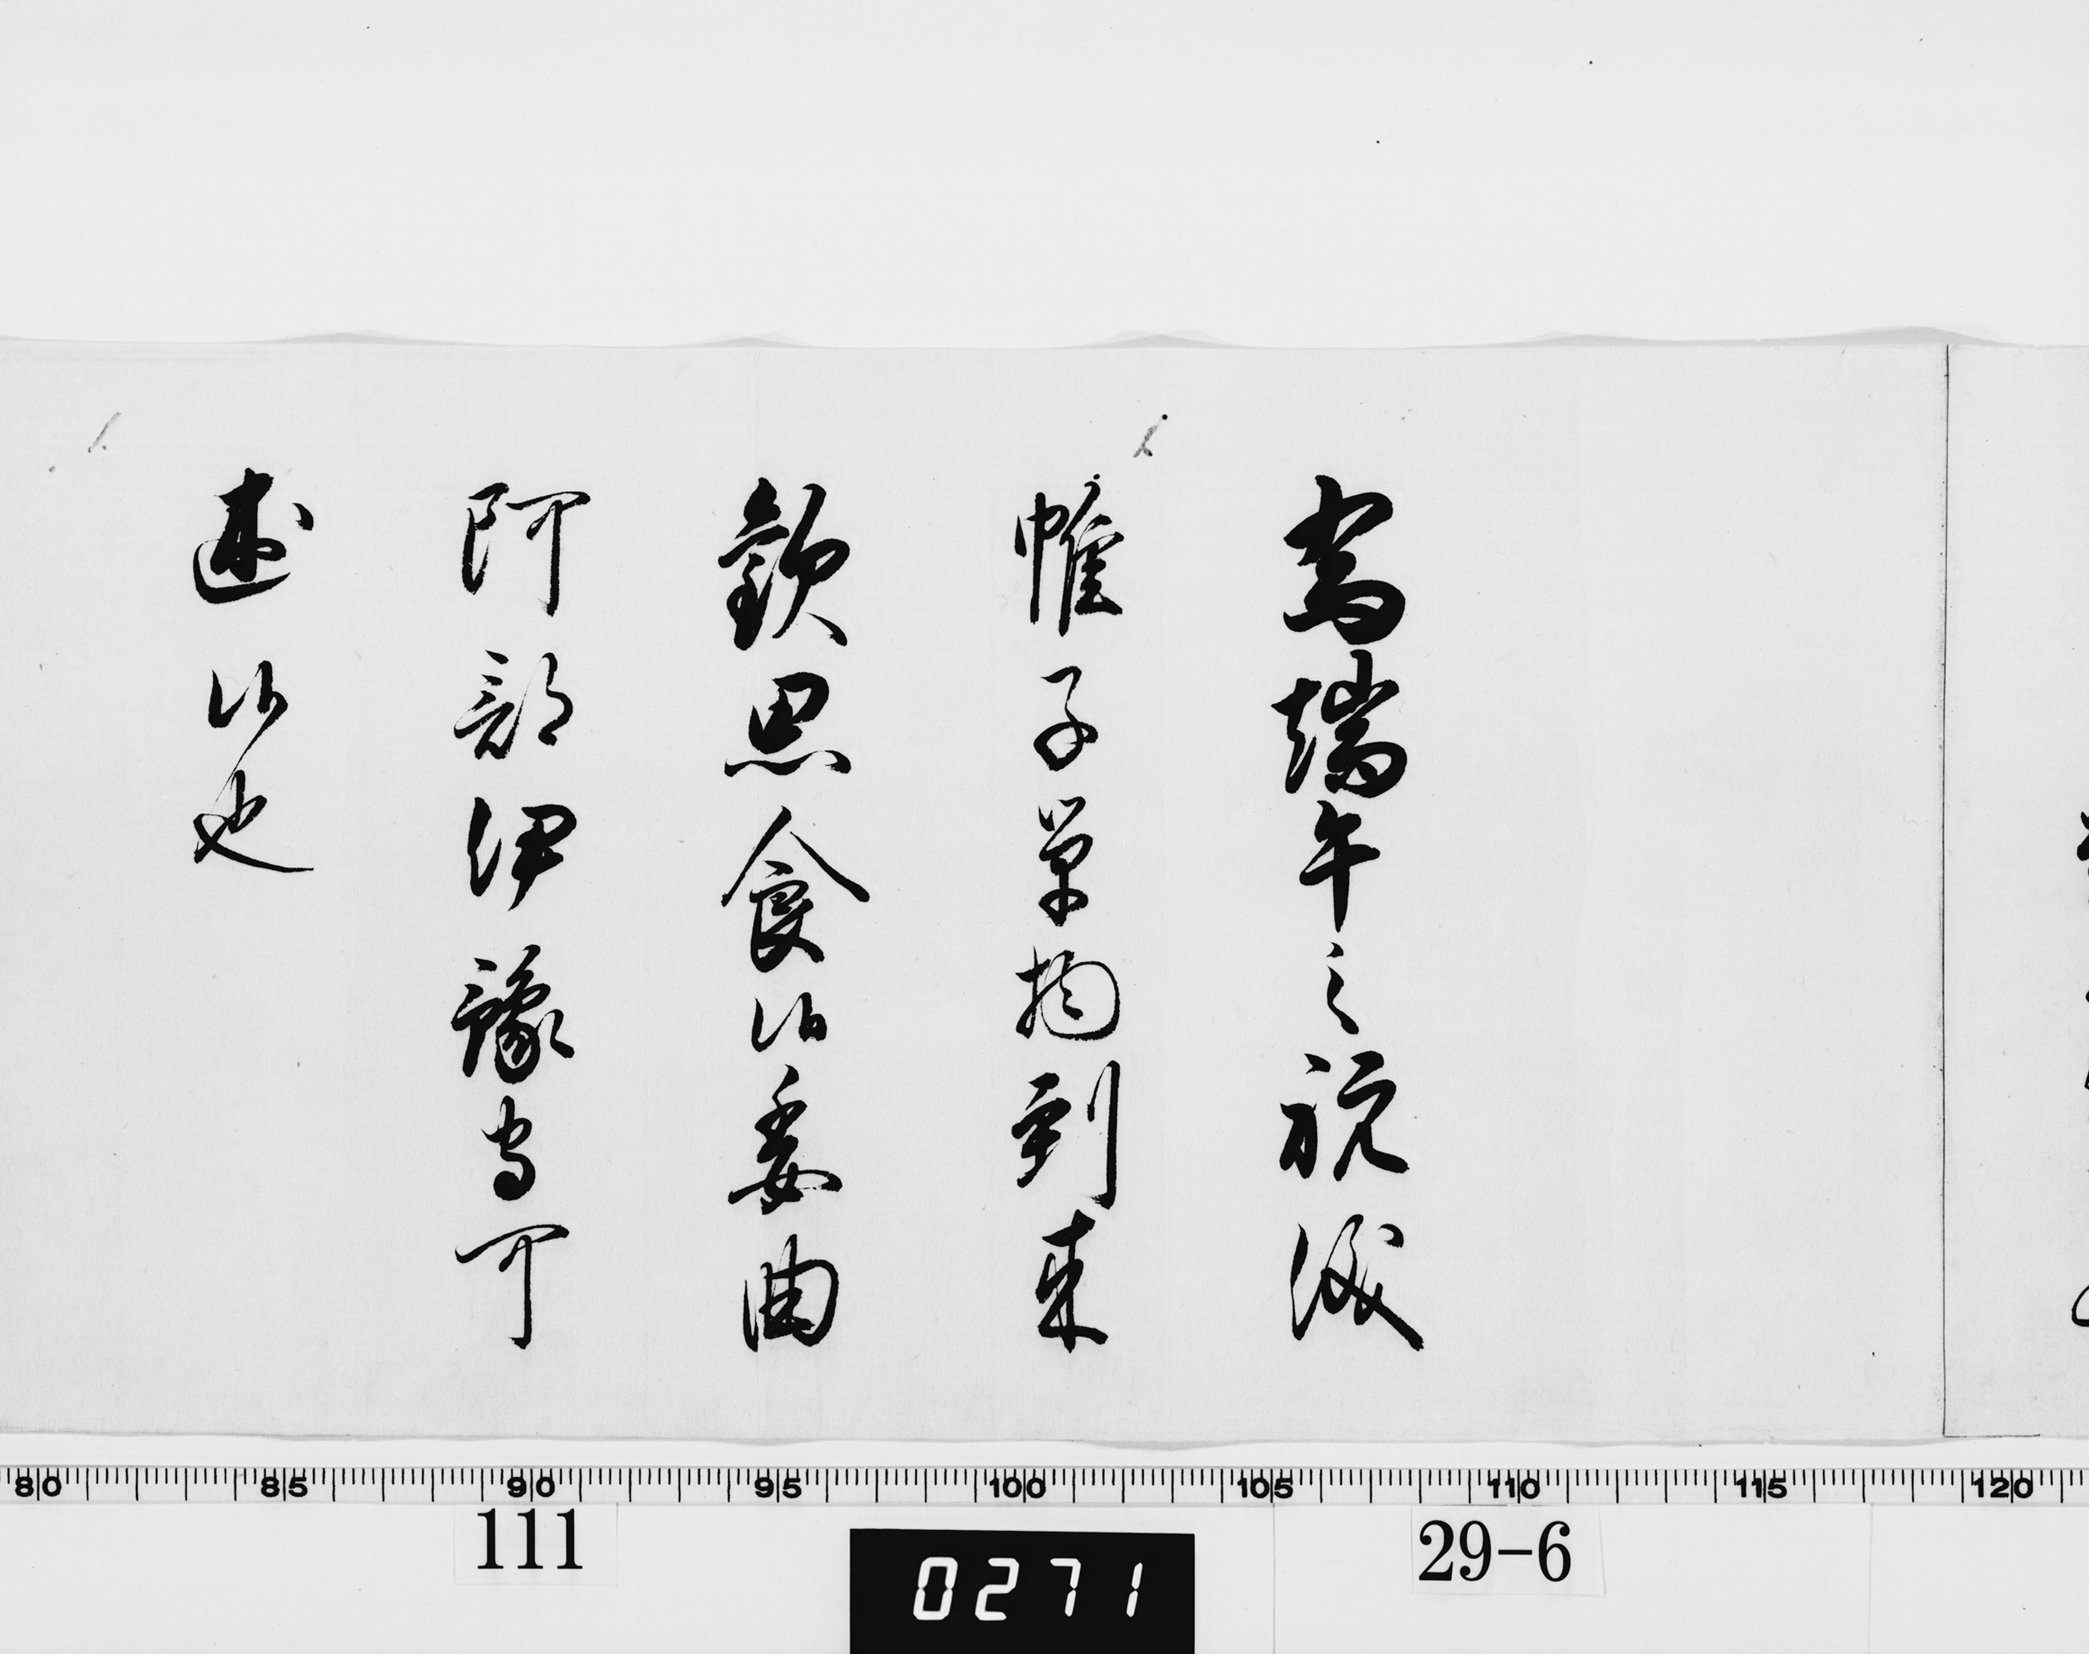 為端午之祝儀
帷子単物到来
歓思食候委曲
阿部伊豫守可
述候也
80 85 90 95 100 105 110 115 120
111
0271
29-6